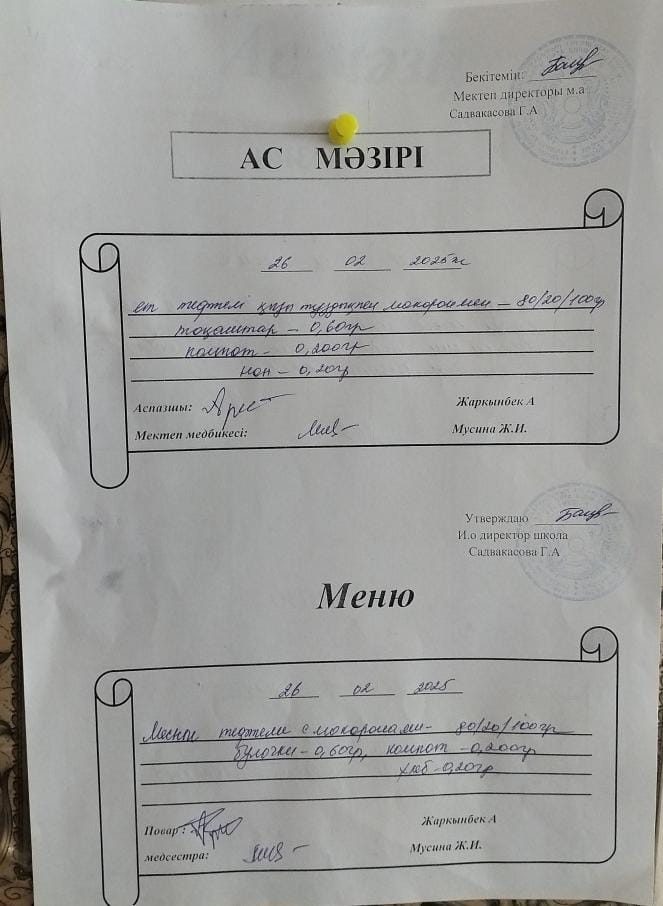 Бекітемін:
Мектеп директоры м.а
Садвакасова Г.А
АС МӘЗІРІ
26 02 2025ж
ет тефтелі қызу тұздықпен макоронмен - 80/20/100гр
тоқаштар - 0,60гр
компот - 0,200гр
нан - 0,20гр
Аспазшы: Жаркынбек А
Мектеп медбикесі: Мусина Ж.И.
Утверждаю
И.о директор школа
Садвакасова Г.А
Меню
26 02 2025
тефтели с макоронами - 80/20/100гр
булочки - 0,60гр, компот - 0,200гр
хлеб - 0,20гр
Повар : Жаркынбек А
медсестра: Мусина Ж.И.